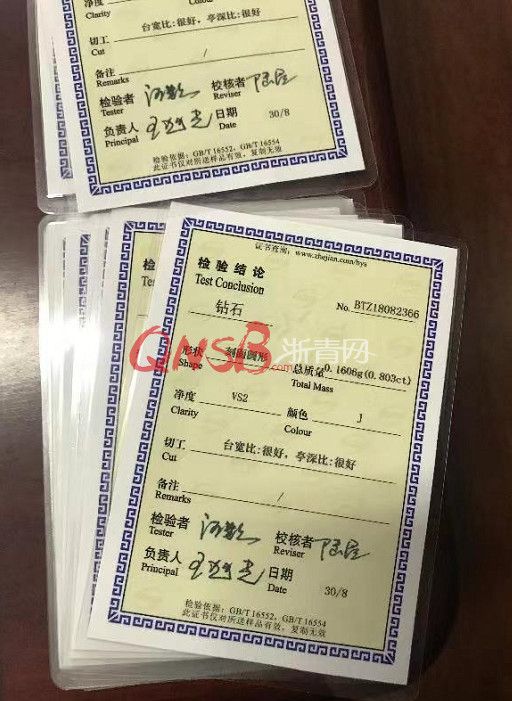 净度
Clarity
Colour
切工 台宽比:很好,亭深比:很好
Cut
备注 /
Remarks
检验者 校核者
Tester Reviser
负责人 日期 30/8
Principal Date
检验依据:GB/T 16552、GB/T 16554
此证书仅对所送样品有效,复制无效
检
Test
钻
形状
Shape
净度
Clarity
切工
Cut
备注
证书查询:www.zhejian.com/hys
检验结论
Test Conclusion
No. BTZ18082366
钻石
QNSB浙青网
形状 刻面圆形 总质量 0.1606g(0.803ct)
Shape Total Mass
净度 VS2 颜色 J
Clarity Colour
切工 台宽比:很好,亭深比:很好
Cut
备注 /
Remarks
检验者 校核者
Tester Reviser
负责人 日期 30/8
Principal Date
检验依据:GB/T 16552、GB/T 16554
此证书仅对所送样品有效,复制无效